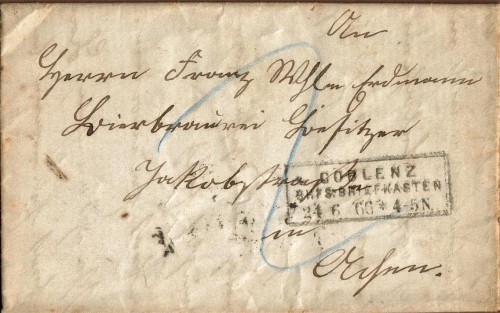 An
Herrn Franz Whlm Erdmann
Bierbrauerei Besitzer
Jakobstraße
in
Achen.
2
COBLENZ
BHFS.BRIEFKASTEN
24 6 66 * 4-5N.